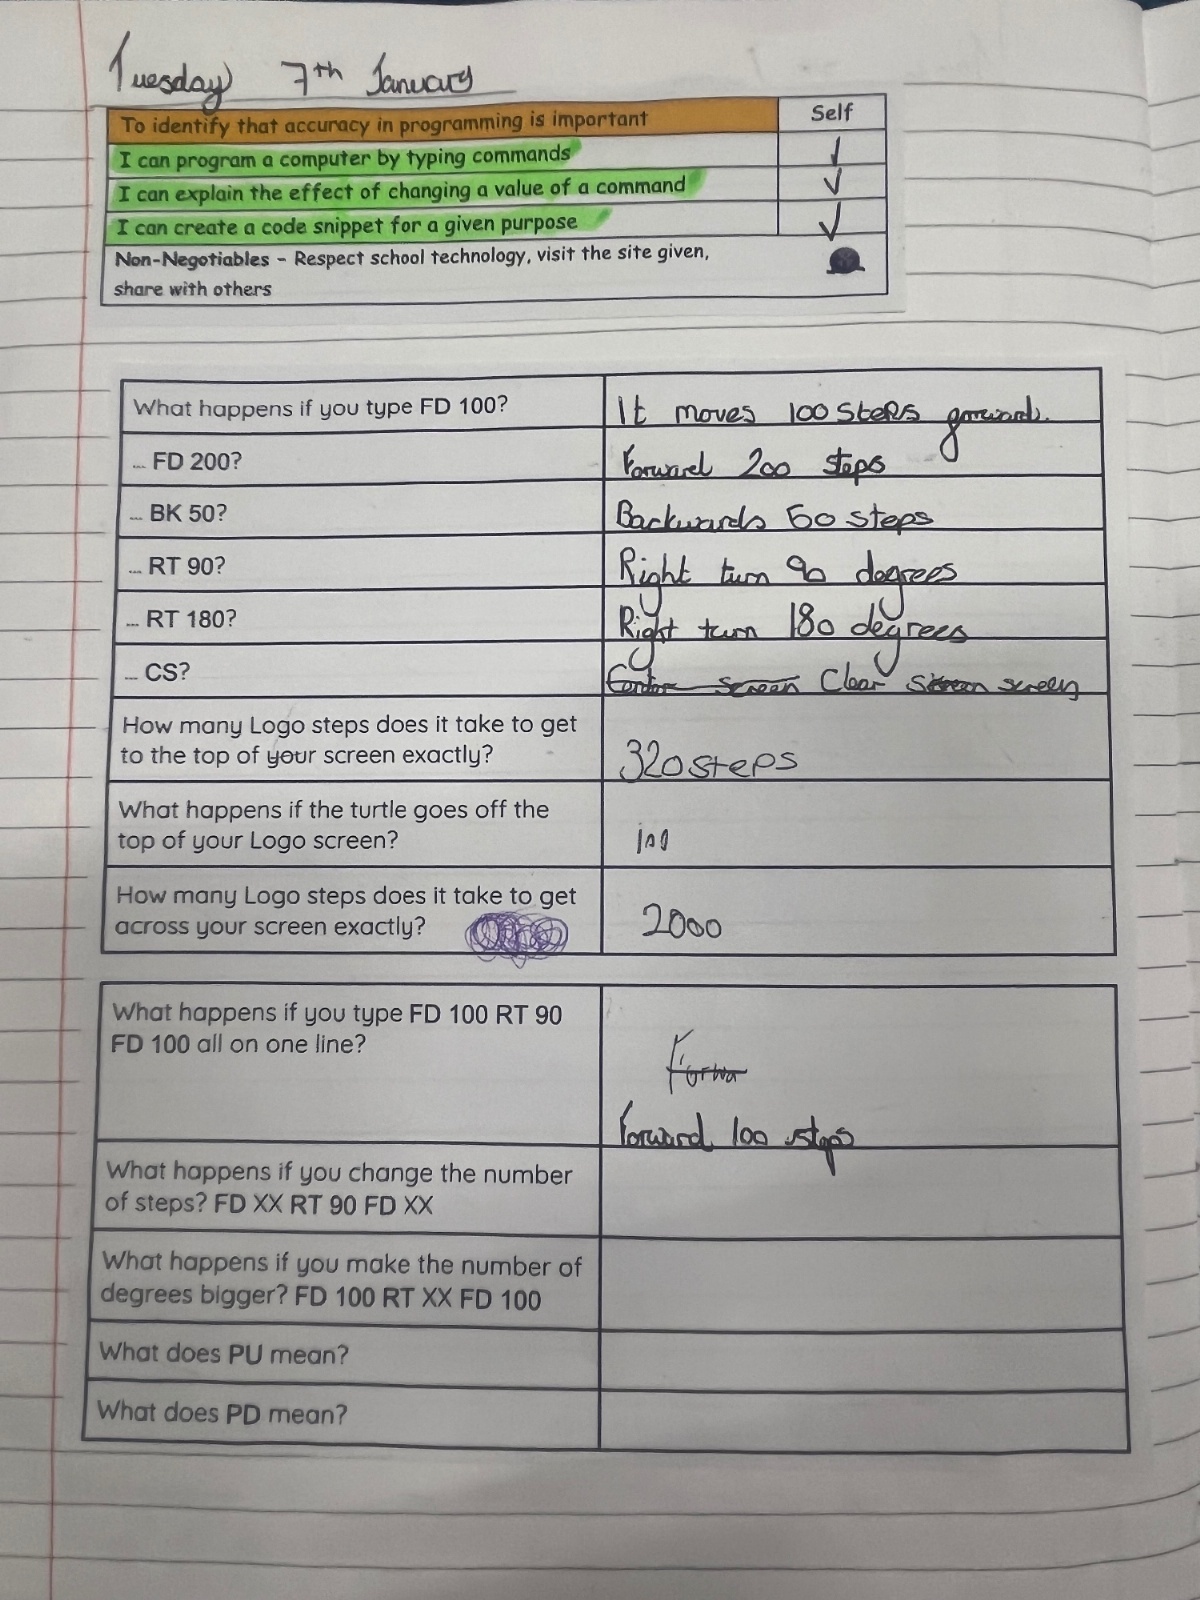 Tuesday 7th January
To identify that accuracy in programming is important
Self
I can program a computer by typing commands
I can explain the effect of changing a value of a command
I can create a code snippet for a given purpose
Non-Negotiables - Respect school technology, visit the site given,
share with others
What happens if you type FD 100?
It moves 100 steps forwards.
... FD 200?
Forward 200 steps
... BK 50?
Backwards 50 steps
... RT 90?
Right turn 90 degrees
... RT 180?
Right turn 180 degrees
... CS?
Centre screen Clear screen screen
How many Logo steps does it take to get
to the top of your screen exactly?
320 steps
What happens if the turtle goes off the
top of your Logo screen?
How many Logo steps does it take to get
across your screen exactly?
2000
What happens if you type FD 100 RT 90
FD 100 all on one line?
Forwa
Forward 100 steps
What happens if you change the number
of steps? FD XX RT 90 FD XX
What happens if you make the number of
degrees bigger? FD 100 RT XX FD 100
What does PU mean?
What does PD mean?